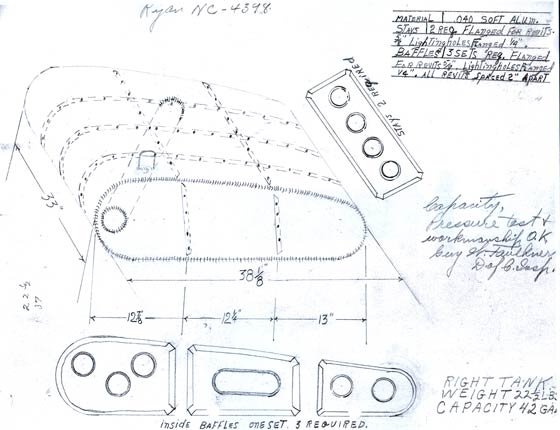 Ryan NC-4398
MATERIAL | .040 SOFT ALUM.
STAYS | 2 REQ. FLANGED FOR REVITS.
LightingholesFlanged 1/4".
BAFFLES | 3 SETS REQ. FLANGED
FOR REVITS 3/4" LightingholesFlanged
1/4". ALL REVITS Spaced 2" APART
STAYS 2 REQUIRED
33"
Capacity,
Pressure test &
workmanship O.K
Guy H. Faulkner
38 1/8"
22 1/2
37
12 7/8"
12 1/4"
13"
RIGHT TANK.
WEIGHT 22 1/2 LB.
CAPACITY 42 GA.
inside BAFFLES ONE SET. 3 REQUIRED.